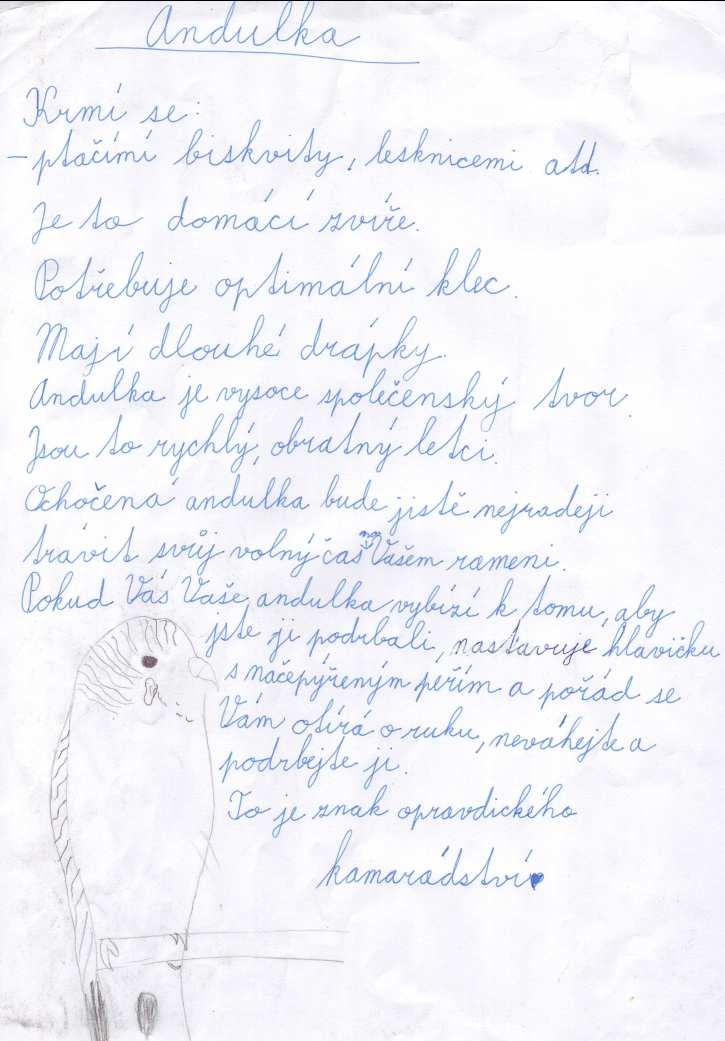 Andulka
Krmí se:
- ptačími biskvity, lesknicemi atd.
Je to domácí zvíře.
Potřebuje optimální klec.
Mají dlouhé drápky.
Andulka je vysoce společenský tvor.
Jsou to rychlý, obratný letci.
Ochočená andulka bude jistě nejradeji
trávit svůj volný čas na Vašem rameni.
Pokud Vás Vaše andulka vybízí k tomu, aby
jste ji podrbali, nastavuje hlavičku
s načepýřeným peřím a pořád se
Vám otírá o ruku, neváhejte a
podrbejte ji.
To je znak opravdického
kamarádství